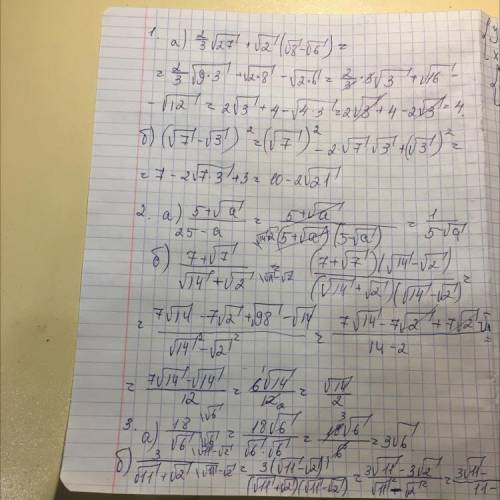 1. а) 2/3 √27 + √2 (√8 - √6) =
= 2/3 √9·3 + √2·8 - √2·6 = 2/3 · 3√3 + √16 -
- √12 = 2√3 + 4 - √4·3 = 2√3 + 4 - 2√3 = 4.
б) (√7 - √3)² = (√7)² - 2√7 √3 + (√3)² =
= 7 - 2√7·3 + 3 = 10 - 2√21
2. а) 5+√a / 25-a = 5+√a / (5+√a)(5-√a) = 1 / 5-√a
б) 7+√7 / √14+√2 \√14-√2 = (7+√7)(√14-√2) / (√14+√2)(√14-√2) =
= 7√14 - 7√2 + √98 - √14 / √14² - √2² = 7√14 - 7√2 + 7√2 / 14-2
= 7√14 - √14 / 12 = 6√14 / 12 = √14 / 2
3. а) 18 / √6 \√6 = 18√6 / √6·√6 = 18√6 / 6 = 3√6
б) 3 / √11+√2 \√11-√2 = 3(√11-√2) / (√11+√2)(√11-√2) = 3√11 - 3√2 / √11² - √2² = 3√11- / 11-